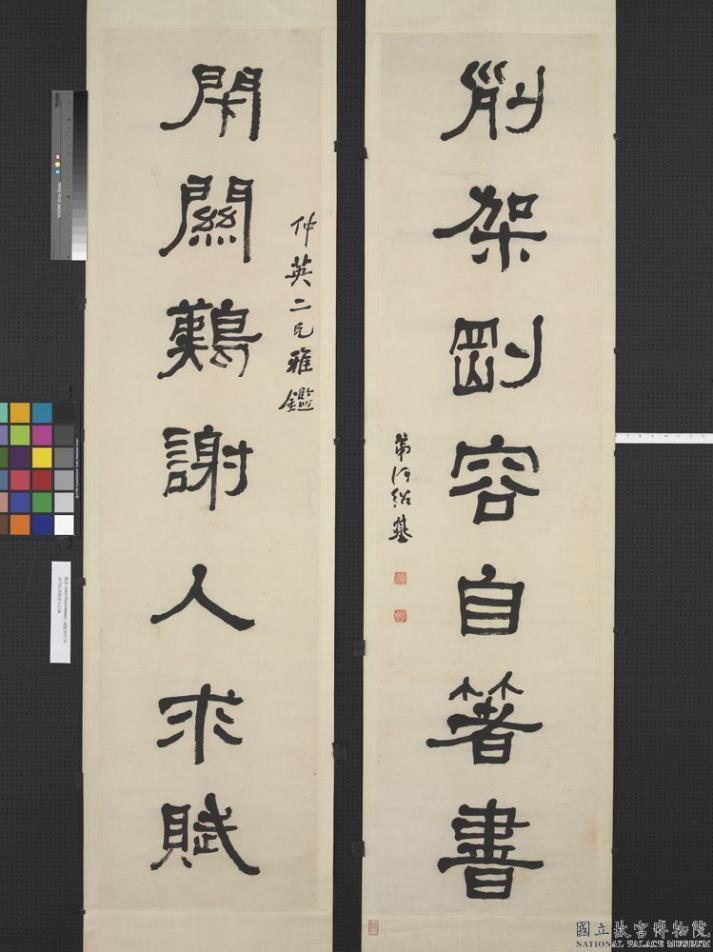 削架剛容自箸書
弟何紹基
仲英二兄雅鑑
閇關難謝人求賦
國立故宮博物院
NATIONAL PALACE MUSEUM